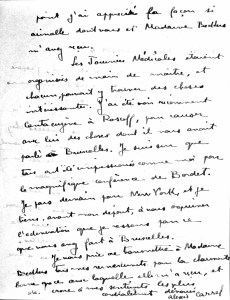 point j'ai apprécié la façon si
aimable dont vous et Madame Bedhus
m'avez reçu.
Les Journées Médicales étaient
organisées de main de maître, et
chacun pouvait y trouver des choses
intéressantes. J'ai été voir récemment
à Roscoff, pour causer
avec lui des choses dont il vous avait
parlé à Bruxelles. Je suis sûr que
tous ont été impressionnés comme moi par
la magnifique conférence de Bordet.
Je pars demain pour New York, et je
tiens, avant mon départ, à vous exprimer
l'admiration que je ressens pour ce
que vous avez fait à Bruxelles.
Je vous prie de transmettre à Madame
tous mes remerciements pour la charmante
bonne grâce avec laquelle elle m'a reçu, et
de croire à mes sentiments les plus
cordialement dévoués
Alexis Carrel